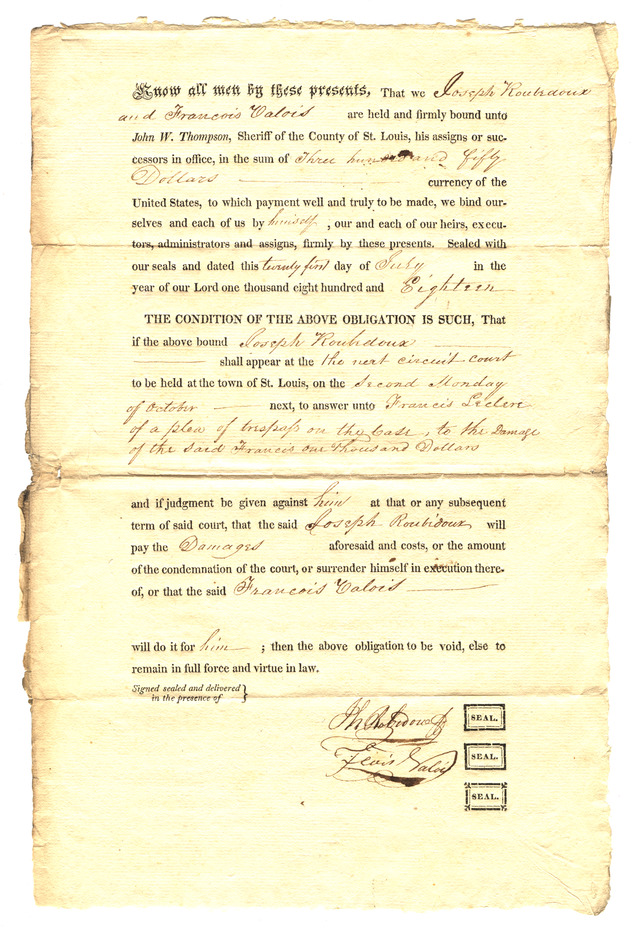 Know all men by these presents, That we Joseph Roubidoux
and Francois Valois are held and firmly bound unto
John W. Thompson, Sheriff of the County of St. Louis, his assigns or suc-
cessors in office, in the sum of Three hundred and fifty
Dollars currency of the
United States, to which payment well and truly to be made, we bind our-
selves and each of us by himself, our and each of our heirs, execu-
tors, administrators and assigns, firmly by these presents. Sealed with
our seals and dated this twenty first day of July in the
year of our Lord one thousand eight hundred and Eighteen
THE CONDITION OF THE ABOVE OBLIGATION IS SUCH, That
if the above bound Joseph Roubidoux
shall appear at the next circuit court
to be held at the town of St. Louis, on the Second Monday
of October next, to answer unto Francis Leclerc
of a plea of trespass on the Case, to the Damage
of the said Francis one Thousand Dollars
and if judgment be given against him at that or any subsequent
term of said court, that the said Joseph Roubidoux will
pay the Damages aforesaid and costs, or the amount
of the condemnation of the court, or surrender himself in execution there-
of, or that the said Francois Valois
will do it for him ; then the above obligation to be void, else to
remain in full force and virtue in law.
Signed sealed and delivered }
in the presence of
SEAL.
Valois SEAL.
SEAL.